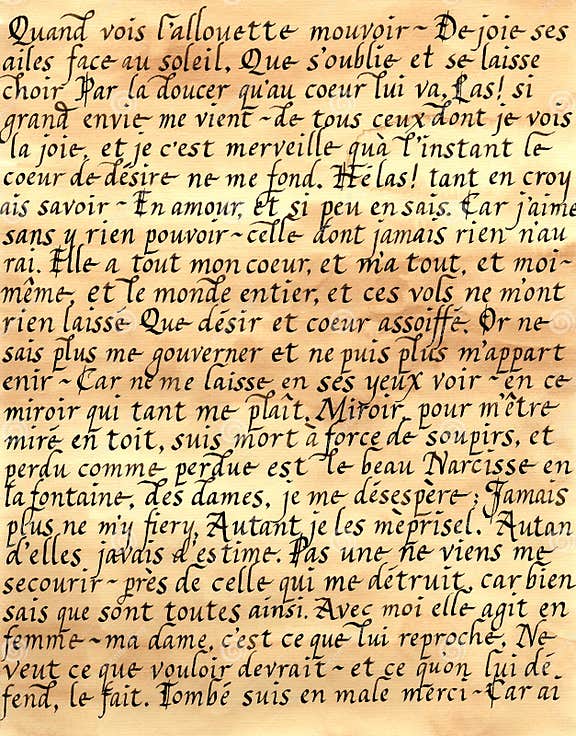 Quand vois l'allouette mouvoir ~ De joie ses
ailes face au soleil, Que s'oublie et se laisse
choir Par la doucer qu'au coeur lui va, Las! si
grand envie me vient ~ de tous ceux dont je vois
la joie, et je c'est merveille quà l'instant le
coeur de désire ne me fond. Hélas! tant en croy
ais savoir ~ En amour, et si peu en sais. Car j'aime
sans y rien pouvoir ~ celle dont jamais rien n'au
rai. Elle a tout mon coeur, et m'a tout, et moi-
même, et le monde entier, et ces vols ne m'ont
rien laissé Que désir et coeur assoiffé. Or ne
sais plus me gouverner et ne puis plus m'appart
enir ~ Car ne me laisse en ses yeux voir ~ en ce
miroir qui tant me plaît. Miroir, pour m'être
miré en toit, suis mort à force de soupirs, et
perdu comme perdue est le beau Narcisse en
la fontaine, des dames, je me désespère; Jamais
plus ne m'y fiery, Autant je les mèprisel. Autan
d'elles javais d'estime. Pas une ne viens me
secourir ~ près de celle qui me détruit, car bien
sais que sont toutes ainsi. Avec moi elle agit en
femme ~ ma dame, c'est ce que lui reproche, Ne
veut ce que vouloir devrait ~ et ce qu'on lui dé
fend, le fait. Tombé suis en male merci ~ Car ai